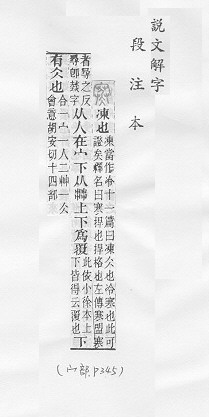 說文解字
段注本
凍也
凍當作冷十一篇曰凍仌也冷寒也此可
證矣釋名曰寒捍也捍格也左傳寒盟寒
者尋之反
尋卽燅字
从人在宀下从茻上下爲覆
此依小徐本上
下皆得云覆也
下
有仌也
合一宀一人二艸一仌
會意胡安切十四部
(宀部.P345)